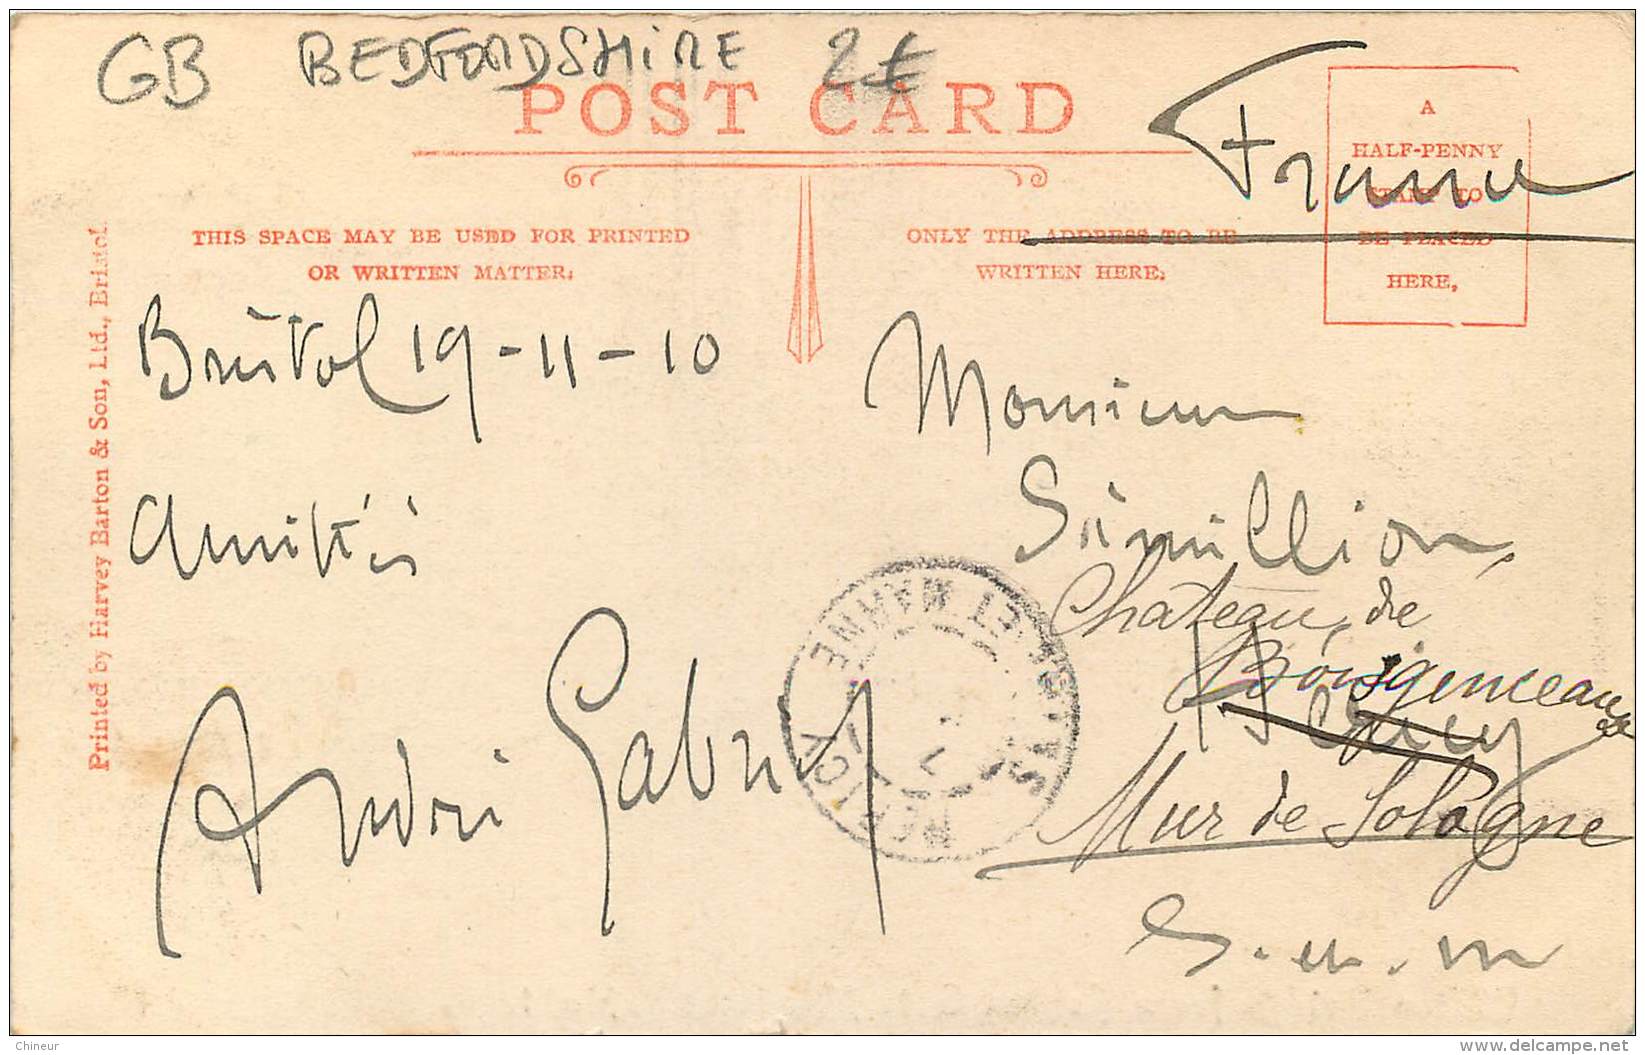 GB BEDFORDSHIRE 2€
POST CARD
France
A
HALF-PENNY
STAMP TO
BE PLACED
HERE.
THIS SPACE MAY BE USED FOR PRINTED
OR WRITTEN MATTER.
ONLY THE ADDRESS TO BE
WRITTEN HERE.
Printed by Harvey Barton & Son, Ltd., Bristol.
Bristol 19-11-10
Amitiés
André Gabriel
Monsieur
Simillion
Château de
Mur de Sologne
S.-et-M
SEINE ET MARNE
Chineur
www.delcampe.net